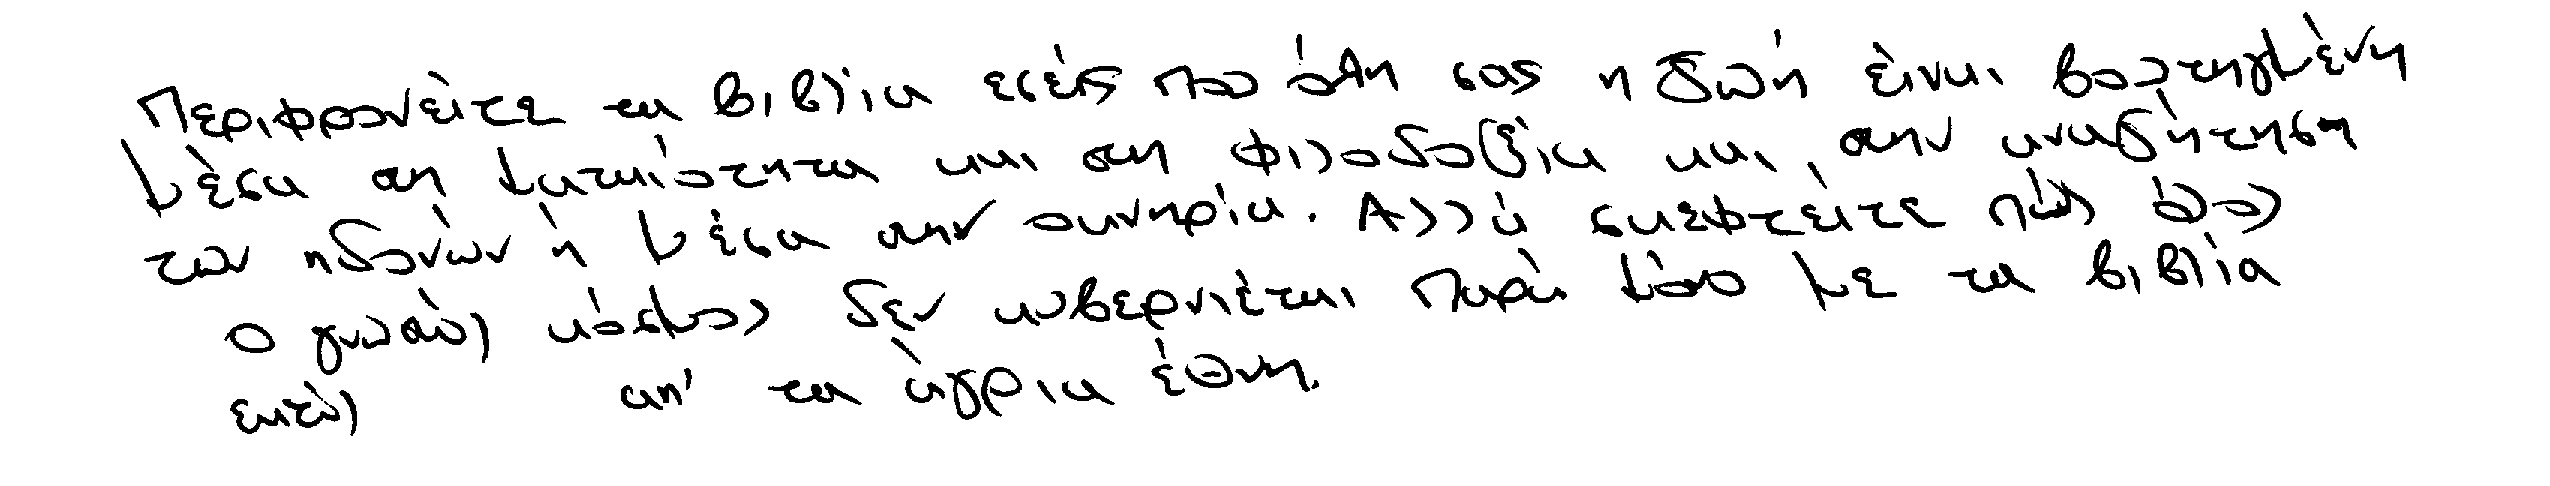 Περιφρονείτε τα βιβλία εσείς που όλη σας η ζωή είναι βουτηγμένη
μέσα στη ματαιότητα και στη φιλοδοξία και στην αναζήτηση
των ηδονών ή μέσα στην οκνηρία. Αλλά σκεφτείτε πώς όλος
ο γνωστός κόσμος δεν κυβερνιέται παρά μόνο με τα βιβλία
εκτός απ' τα άγρια έθνη.